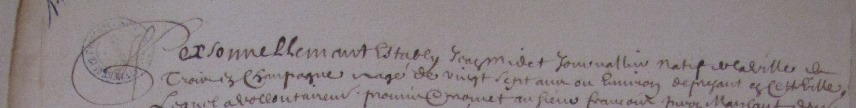 Personnellement Estably Jean Midet Journallier natif de la ville de
Troie en Champagne aagé de vingt sept ans ou Environ de present en cette ville,
Lequel a vollontairement promis Et promet au sieur francois marchant